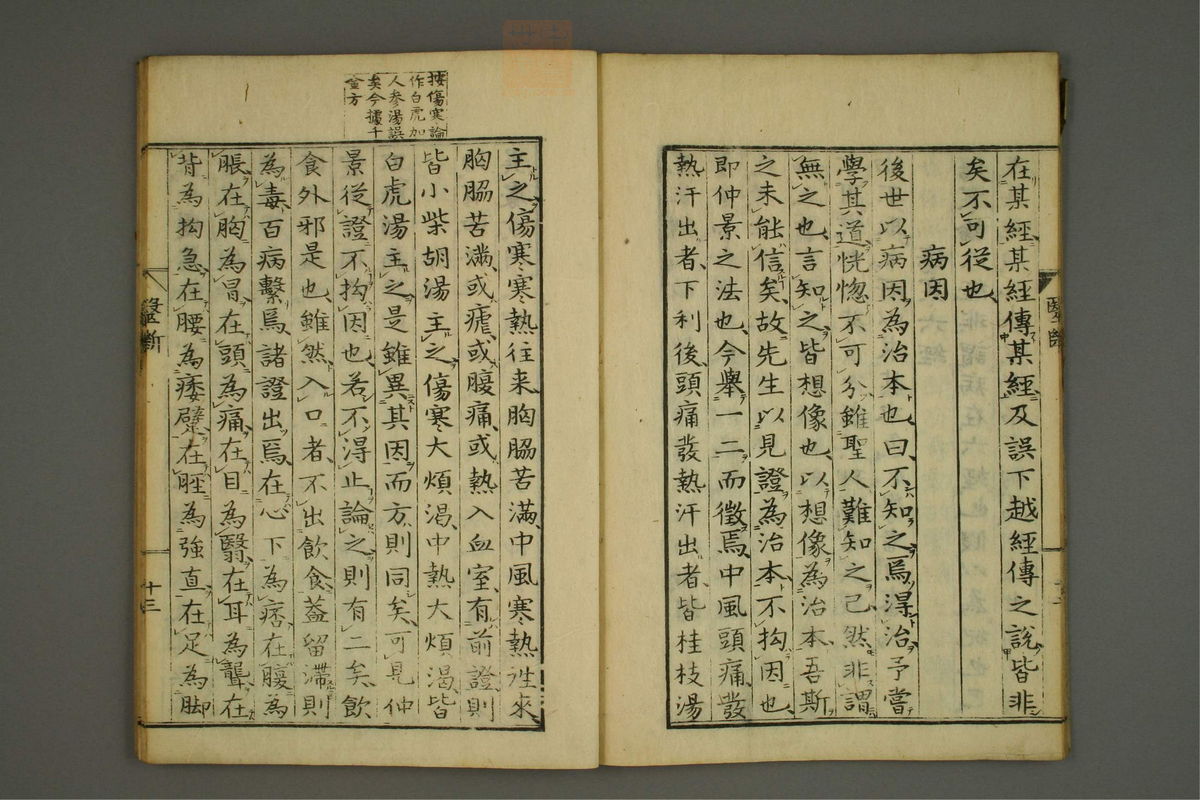 在某經某經傳某經及誤下越經傳之説皆非
矣不可從也
病因
後世以病因為治本也曰不知之焉得治予嘗
學其道恍惚不可分雖聖人難知之已然非謂
無之也言知之皆想像也以想像為治本吾斯
之未能信矣故先生以見證為治本不拘因也
即仲景之法也今舉一二而徴焉中風頭痛發
熱汗出者下利後頭痛發熱汗出者皆桂枝湯
醫斷
按傷寒論
作白虎加
人参湯誤
矣今據千
金方
主之傷寒寒熱往来胸脇苦滿中風寒熱往來
胸脇苦滿或瘧或腹痛或熱入血室有前證則
皆小柴胡湯主之傷寒大煩渇中熱大煩渇皆
白虎湯主之是雖異其因而方則同矣可見仲
景從證不拘因也若不得止論之則有二矣飲
食外邪是也雖然入口者不出飲食蓋留滯則
為毒百病繫焉諸證出焉在心下為痞在腹為
脹在胸為冒在頭為痛在目為翳在耳為聾在
背為拘急在腰為痿躄在脛為強直在足為脚
醫斷
十三